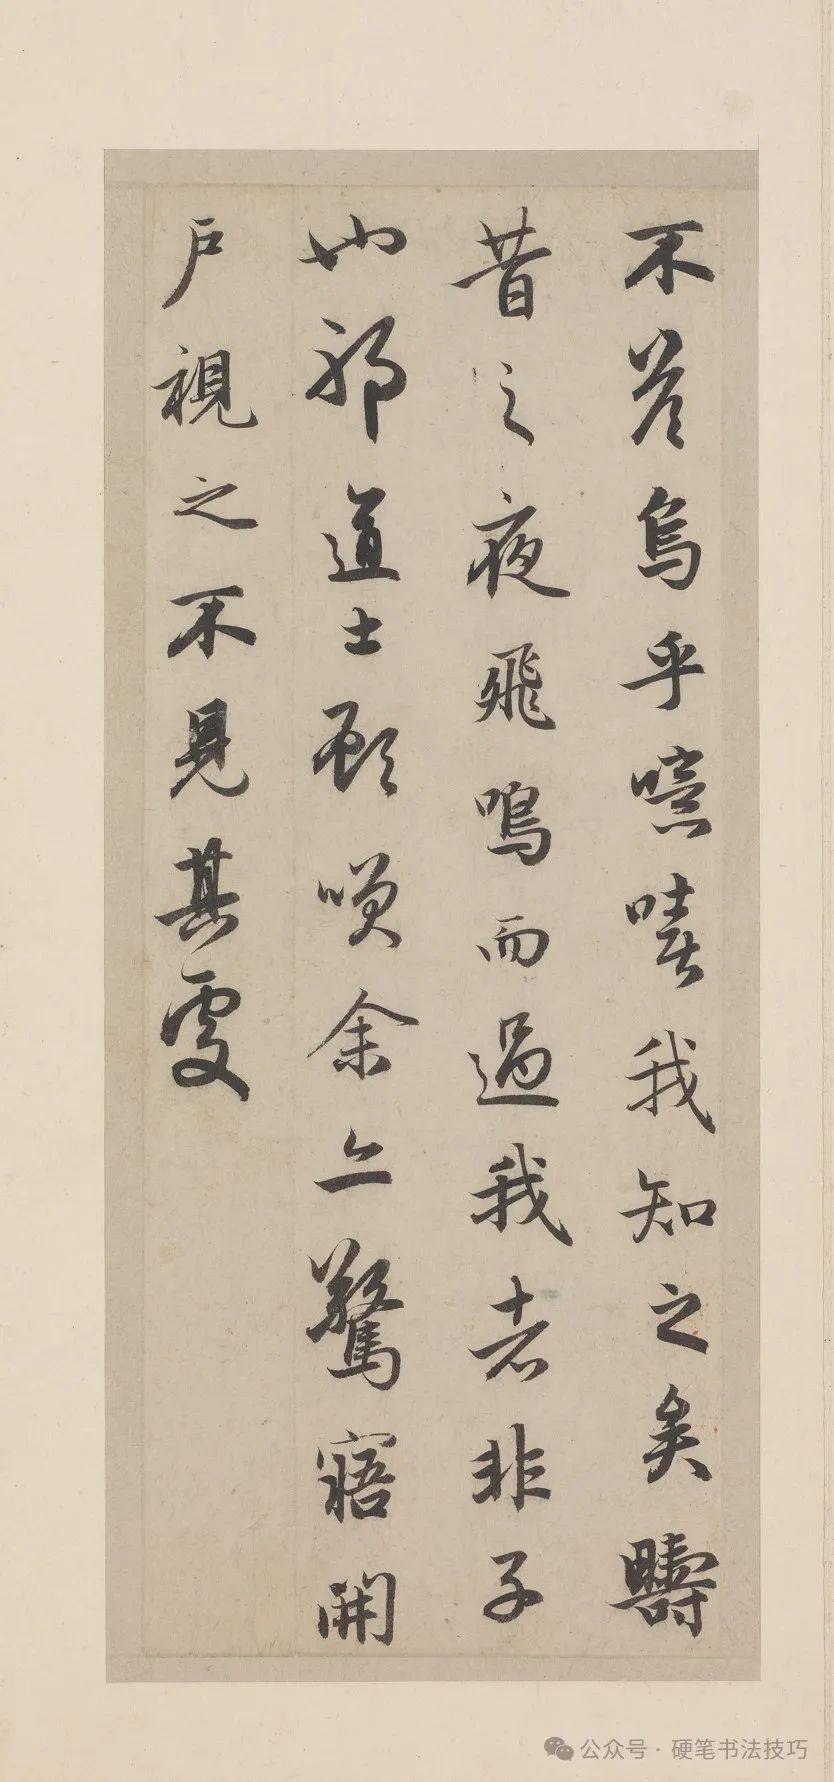 不荅烏乎噫嘻我知之矣疇
昔之夜飛鳴而過我者非子
也邪道士顧咲余亦驚寤開
戶視之不見其處
公众号 · 硬笔书法技巧